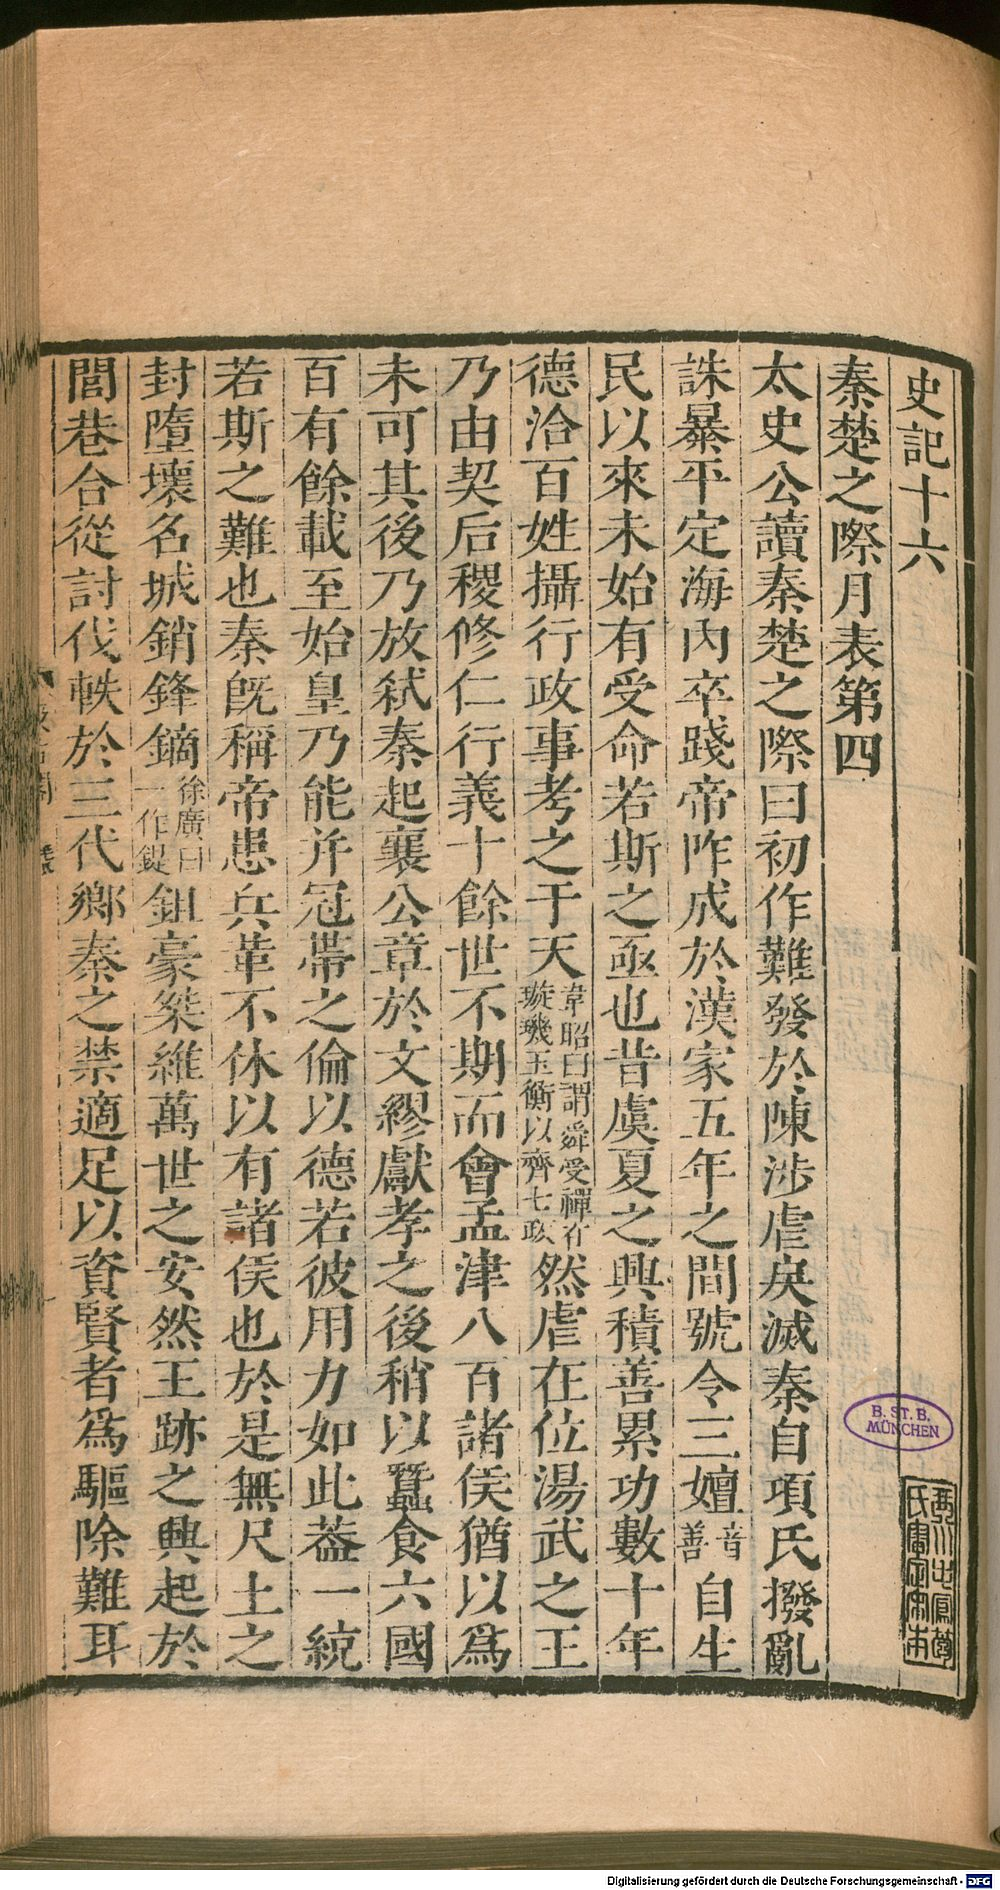 史記十六
秦楚之際月表第四
太史公讀秦楚之際曰初作難發於陳涉虐戾滅秦自項氏撥亂
誅暴平定海內卒踐帝祚成於漢家五年之間號令三嬗音善自生
民以來未始有受命若斯之亟也昔虞夏之興積善累功數十年
德洽百姓攝行政事考之于天韋昭曰謂舜受禪在璇璣玉衡以齊七政然虐在位湯武之王
乃由契后稷修仁行義十餘世不期而會孟津八百諸侯猶以爲
未可其後乃放弑秦起襄公章於文繆獻孝之後稍以蠶食六國
百有餘載至始皇乃能并冠帶之倫以德若彼用力如此葢一統
若斯之難也秦旣稱帝患兵革不休以有諸侯也於是無尺土之
封墮壞名城銷鋒鏑徐廣曰一作鍉鉏豪桀維萬世之安然王跡之興起於
閭巷合從討伐軼於三代鄉秦之禁適足以資賢者爲驅除難耳
B. ST. B.
MÜNCHEN
Digitalisierung gefördert durch die Deutsche Forschungsgemeinschaft - DFG